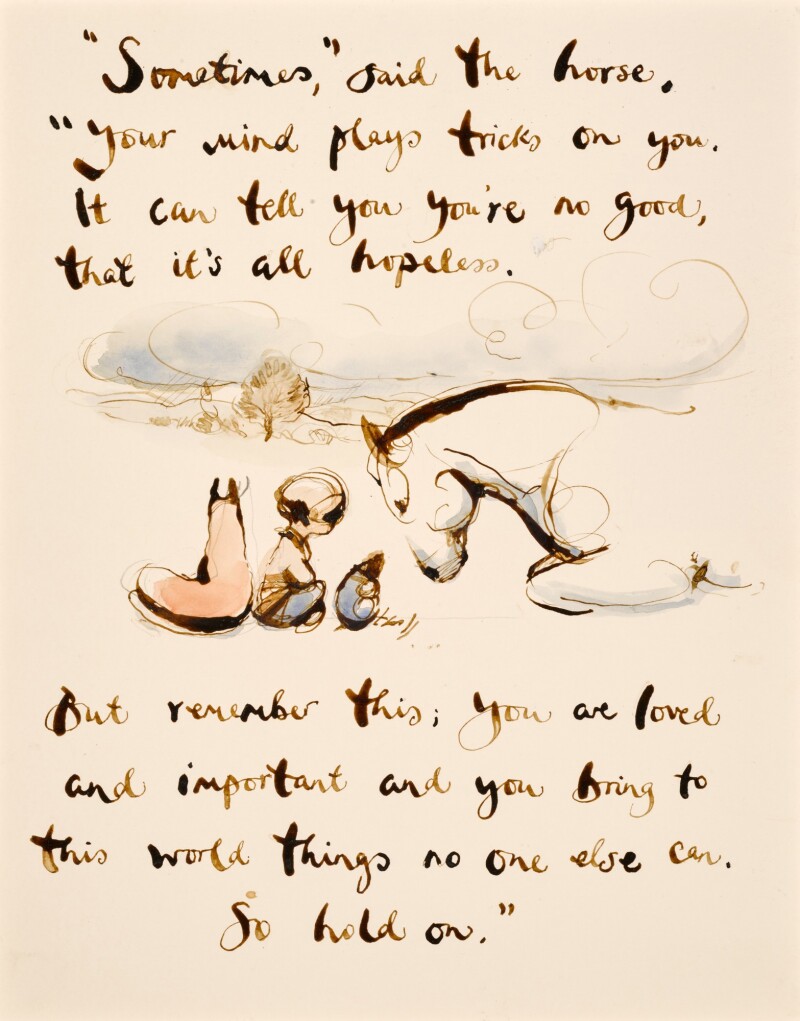 "Sometimes," said the horse,
"Your mind plays tricks on you.
It can tell you you're no good,
that it's all hopeless.
But remember this; You are loved
and important and you bring to
this world things no one else can.
So hold on."